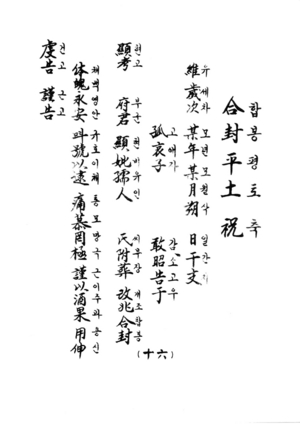 합봉평토축
合封平土祝
유세차 모년모월삭 일간지
維歲次 某年某月朔 日干支
고애가 감소고우
孤哀子 敢昭告于
현고 부군 현비유인 씨부장 개조합봉
顯考 府君 顯妣孺人 氏祔葬 改兆合封
체백영안 규호이체 통모망극 근이주과 용신
体魄永安 叫號以逮 痛慕罔極 謹以酒果 用伸
건고 근고
虔告 謹告
(十六)